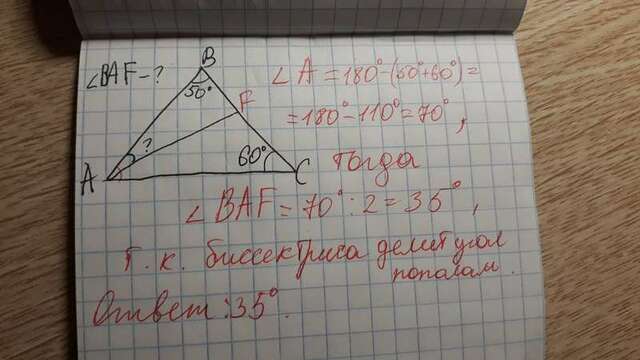 ∠BAF - ?
B
50°
F
?
60°
A
C
∠A = 180° - (50° + 60°) =
= 180° - 110° = 70°,
тогда
∠BAF = 70° : 2 = 35°,
т.к. биссектриса делит угол
пополам.
Ответ: 35°.